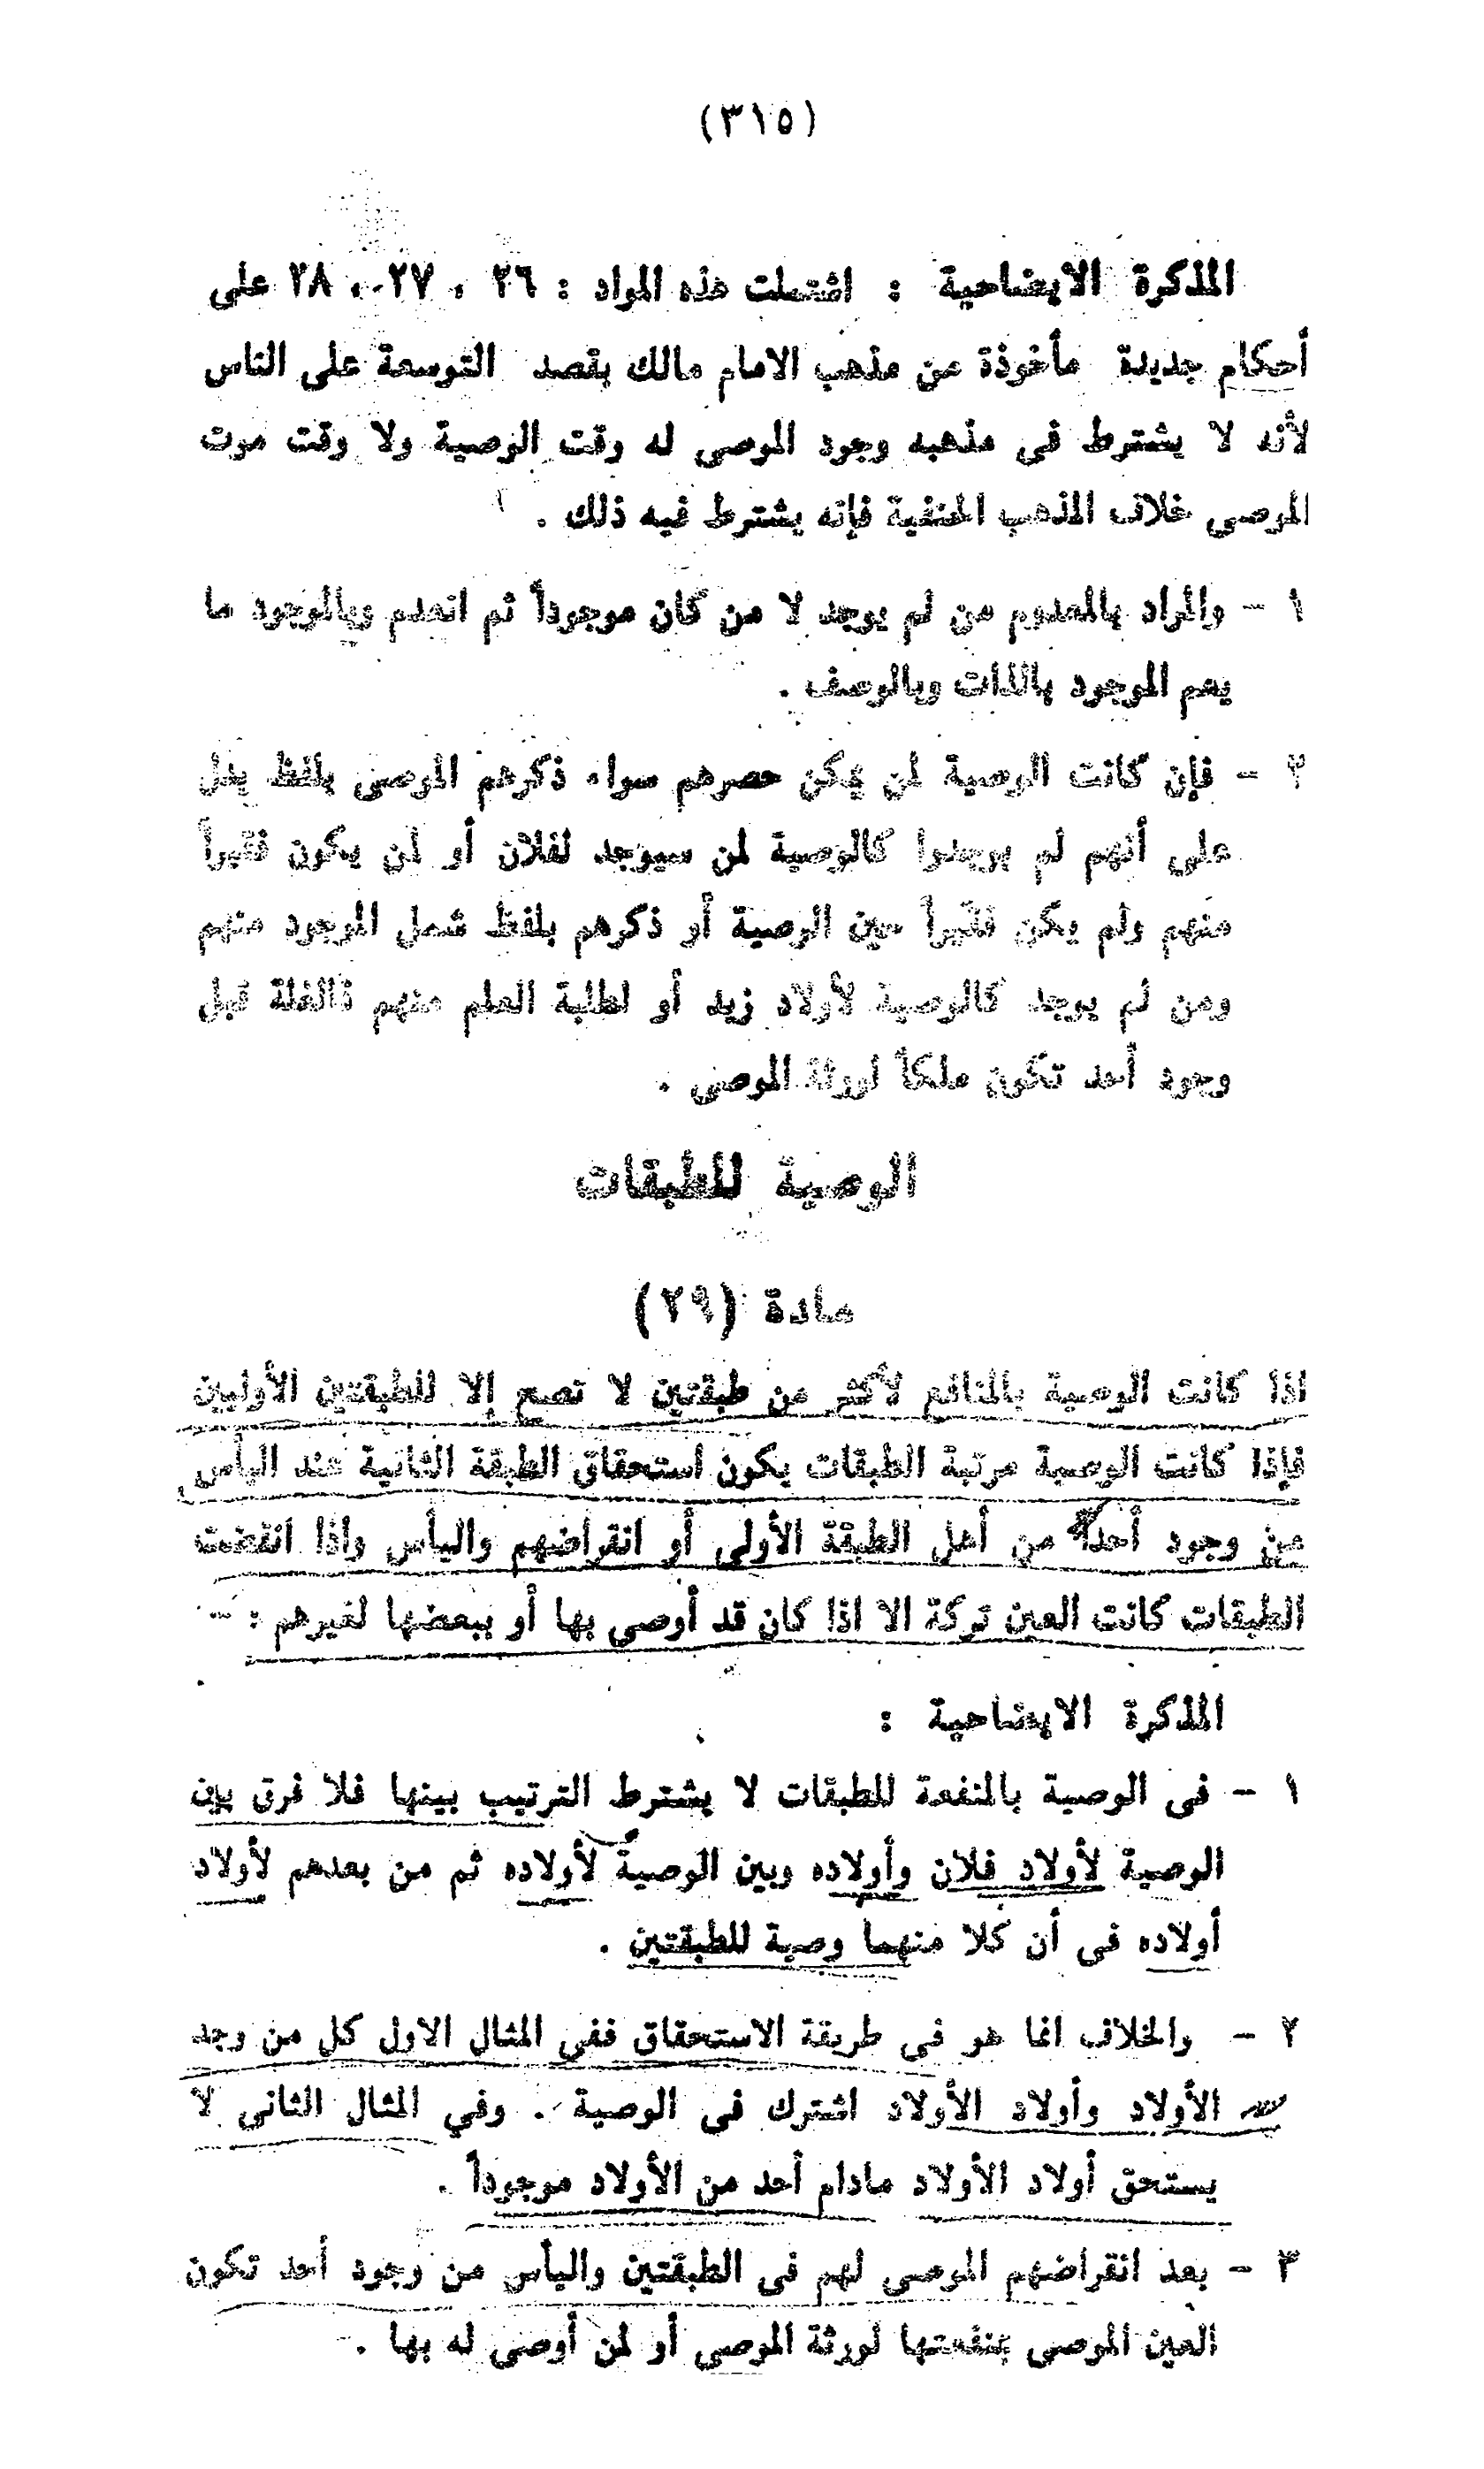 (٣١٥)
المذكرة الايضاحية : اشتملت هذه المواد : ٢٦ ، ٢٧ ، ٢٨ على
أحكام جديدة مأخوذة من مذهب الامام مالك بقصد التوسعة على الناس
لأنه لا يشترط فى مذهبه وجود الموصى له وقت الوصية ولا وقت موت
الموصى خلاف المذهب الحنفية فإنه يشترط فيه ذلك .
١ - والمراد بالمعدوم من لم يوجد لا من كان موجوداً ثم انعدم وبالموجود ما
يعم الموجود بالذات وبالوصف .
٢ - فإن كانت الوصية لمن يمكن حصرهم سواء ذكرهم الموصى بلفظ يدل
على أنهم لم يوجدوا كالوصية لمن سيوجد لفلان أو لمن يكون فقيراً
منهم ولم يكن فقيراً حين الوصية أو ذكرهم بلفظ شمل الموجود منهم
ومن لم يوجد كالوصية لأولاد زيد أو لطلبة العلم منهم فالغلة قبل
وجود أحد تكون ملكاً لورثة الموصى .
الوصية للطبقات
مادة (٢٩)
اذا كانت الوصية بالمنافع لأكثر من طبقتين لا تصح إلا للطبقتين الأوليين
فإذا كانت الوصية مرتبة الطبقات يكون استحقاق الطبقة الثانية عند اليأس
من وجود أحد من أهل الطبقة الأولى أو انقراضهم واليأس واذا انقضت
الطبقات كانت العين تركة الا اذا كان قد أوصى بها أو ببعضها لغيرهم : -
المذكرة الايضاحية :
١ - فى الوصية بالمنفعة للطبقات لا يشترط الترتيب بينها فلا فرق بين
الوصية لأولاد فلان وأولاده وبين الوصية لأولاده ثم من بعدهم لأولاد
أولاده فى أن كلا منهما وصية للطبقتين .
٢ - والخلاف انما هو فى طريقة الاستحقاق ففى المثال الاول كل من وجد
من الأولاد وأولاد الأولاد اشترك فى الوصية . وفي المثال الثانى لا
يستحق أولاد الأولاد مادام أحد من الأولاد موجوداً .
٣ - بعد انقراضهم الموصى لهم فى الطبقتين واليأس من وجود أحد تكون
العين الموصى بمنفعتها لورثة الموصى أو لمن أوصى له بها .